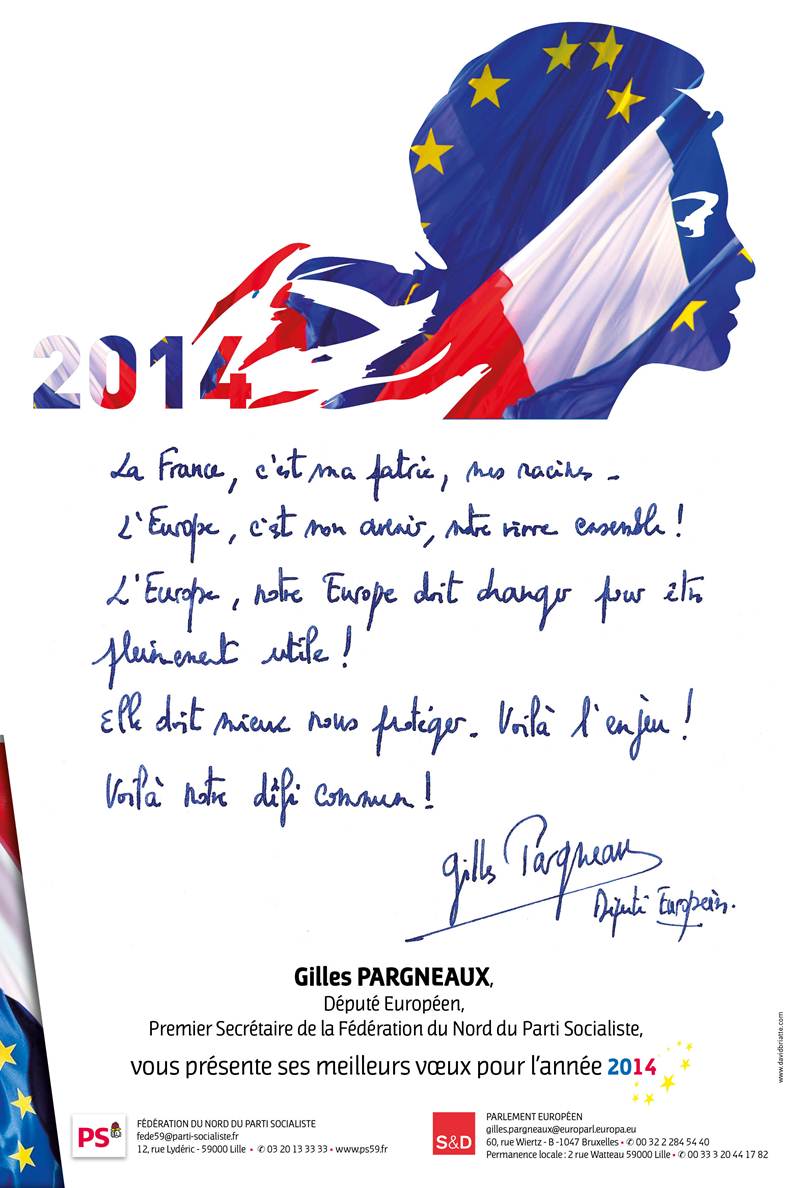 2014
La France, c'est ma patrie, mes racines -
L'Europe, c'est mon avenir, notre vivre ensemble !
L'Europe, notre Europe doit changer pour être
pleinement utile !
Elle doit mieux nous protéger. Voilà l'enjeu !
Voilà notre défi commun !
Gilles Pargneaux
Député Européen.
Gilles PARGNEAUX,
Député Européen,
Premier Secrétaire de la Fédération du Nord du Parti Socialiste,
vous présente ses meilleurs vœux pour l'année 2014
www.davidbriatte.com
PS
FÉDÉRATION DU NORD DU PARTI SOCIALISTE
fede59@parti-socialiste.fr
12, rue Lydéric - 59000 Lille • ✆ 03 20 13 33 33 • www.ps59.fr
S&D
PARLEMENT EUROPÉEN
gilles.pargneaux@europarl.europa.eu
60, rue Wiertz - B -1047 Bruxelles • ✆ 00 32 2 284 54 40
Permanence locale : 2 rue Watteau 59000 Lille • ✆ 00 33 3 20 44 17 82